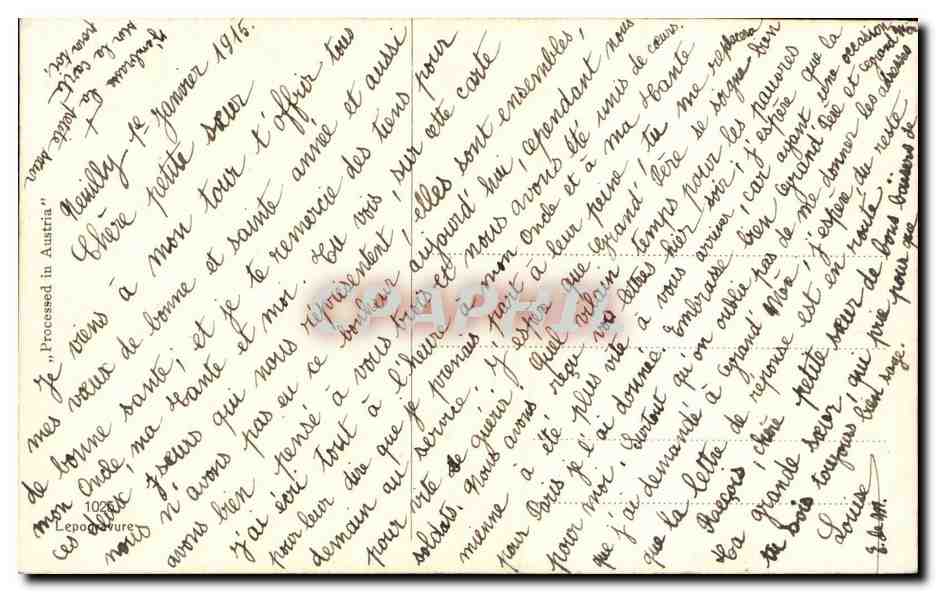 Neuilly 1er Janvier 1915.
Chère petite sœur
Je viens à mon tour t'offrir tous
mes vœux de bonne et sainte année et aussi
de bonne santé, et je te remercie des tiens pour
mon Oncle, ma Tante et moi. Tu vois, sur cette carte
ces deux sœurs qui nous représentent, elles sont ensembles,
nous n'avons pas eu ce bonheur aujourd'hui, cependant nous
avons bien pensé à vous et nous avons été unis de cœurs.
J'ai écrit tout à l'heure à mon Oncle et à ma Tante
pour leur dire que je prenais part à leur peine
demain au service. J'espère que Grand'Père se soigne bien
pour vite guérir. Quel vilain temps pour les pauvres
soldats. Nous avons reçu vos lettres hier soir, la
mienne a été plus vite à vous arriver, car j'espère que la
pour Paris je l'ai donné
pour moi. Embrasse bien Grand'Père et Grand'
Surtout qu'on oublie pas de me donner les adresses
que j'ai demandé à Grand'Mère, j'espère, du reste
que ta lettre de réponse est en route.
Reçois, chère petite sœur de bons baisers de
ta grande sœur, qui prie pour que
tu sois toujours bien sage.
Louise
E. de M.
J'embrasse
sur la carte
pour toi.
"Processed in Austria"
1026
Lepogravure
CPAPHIL